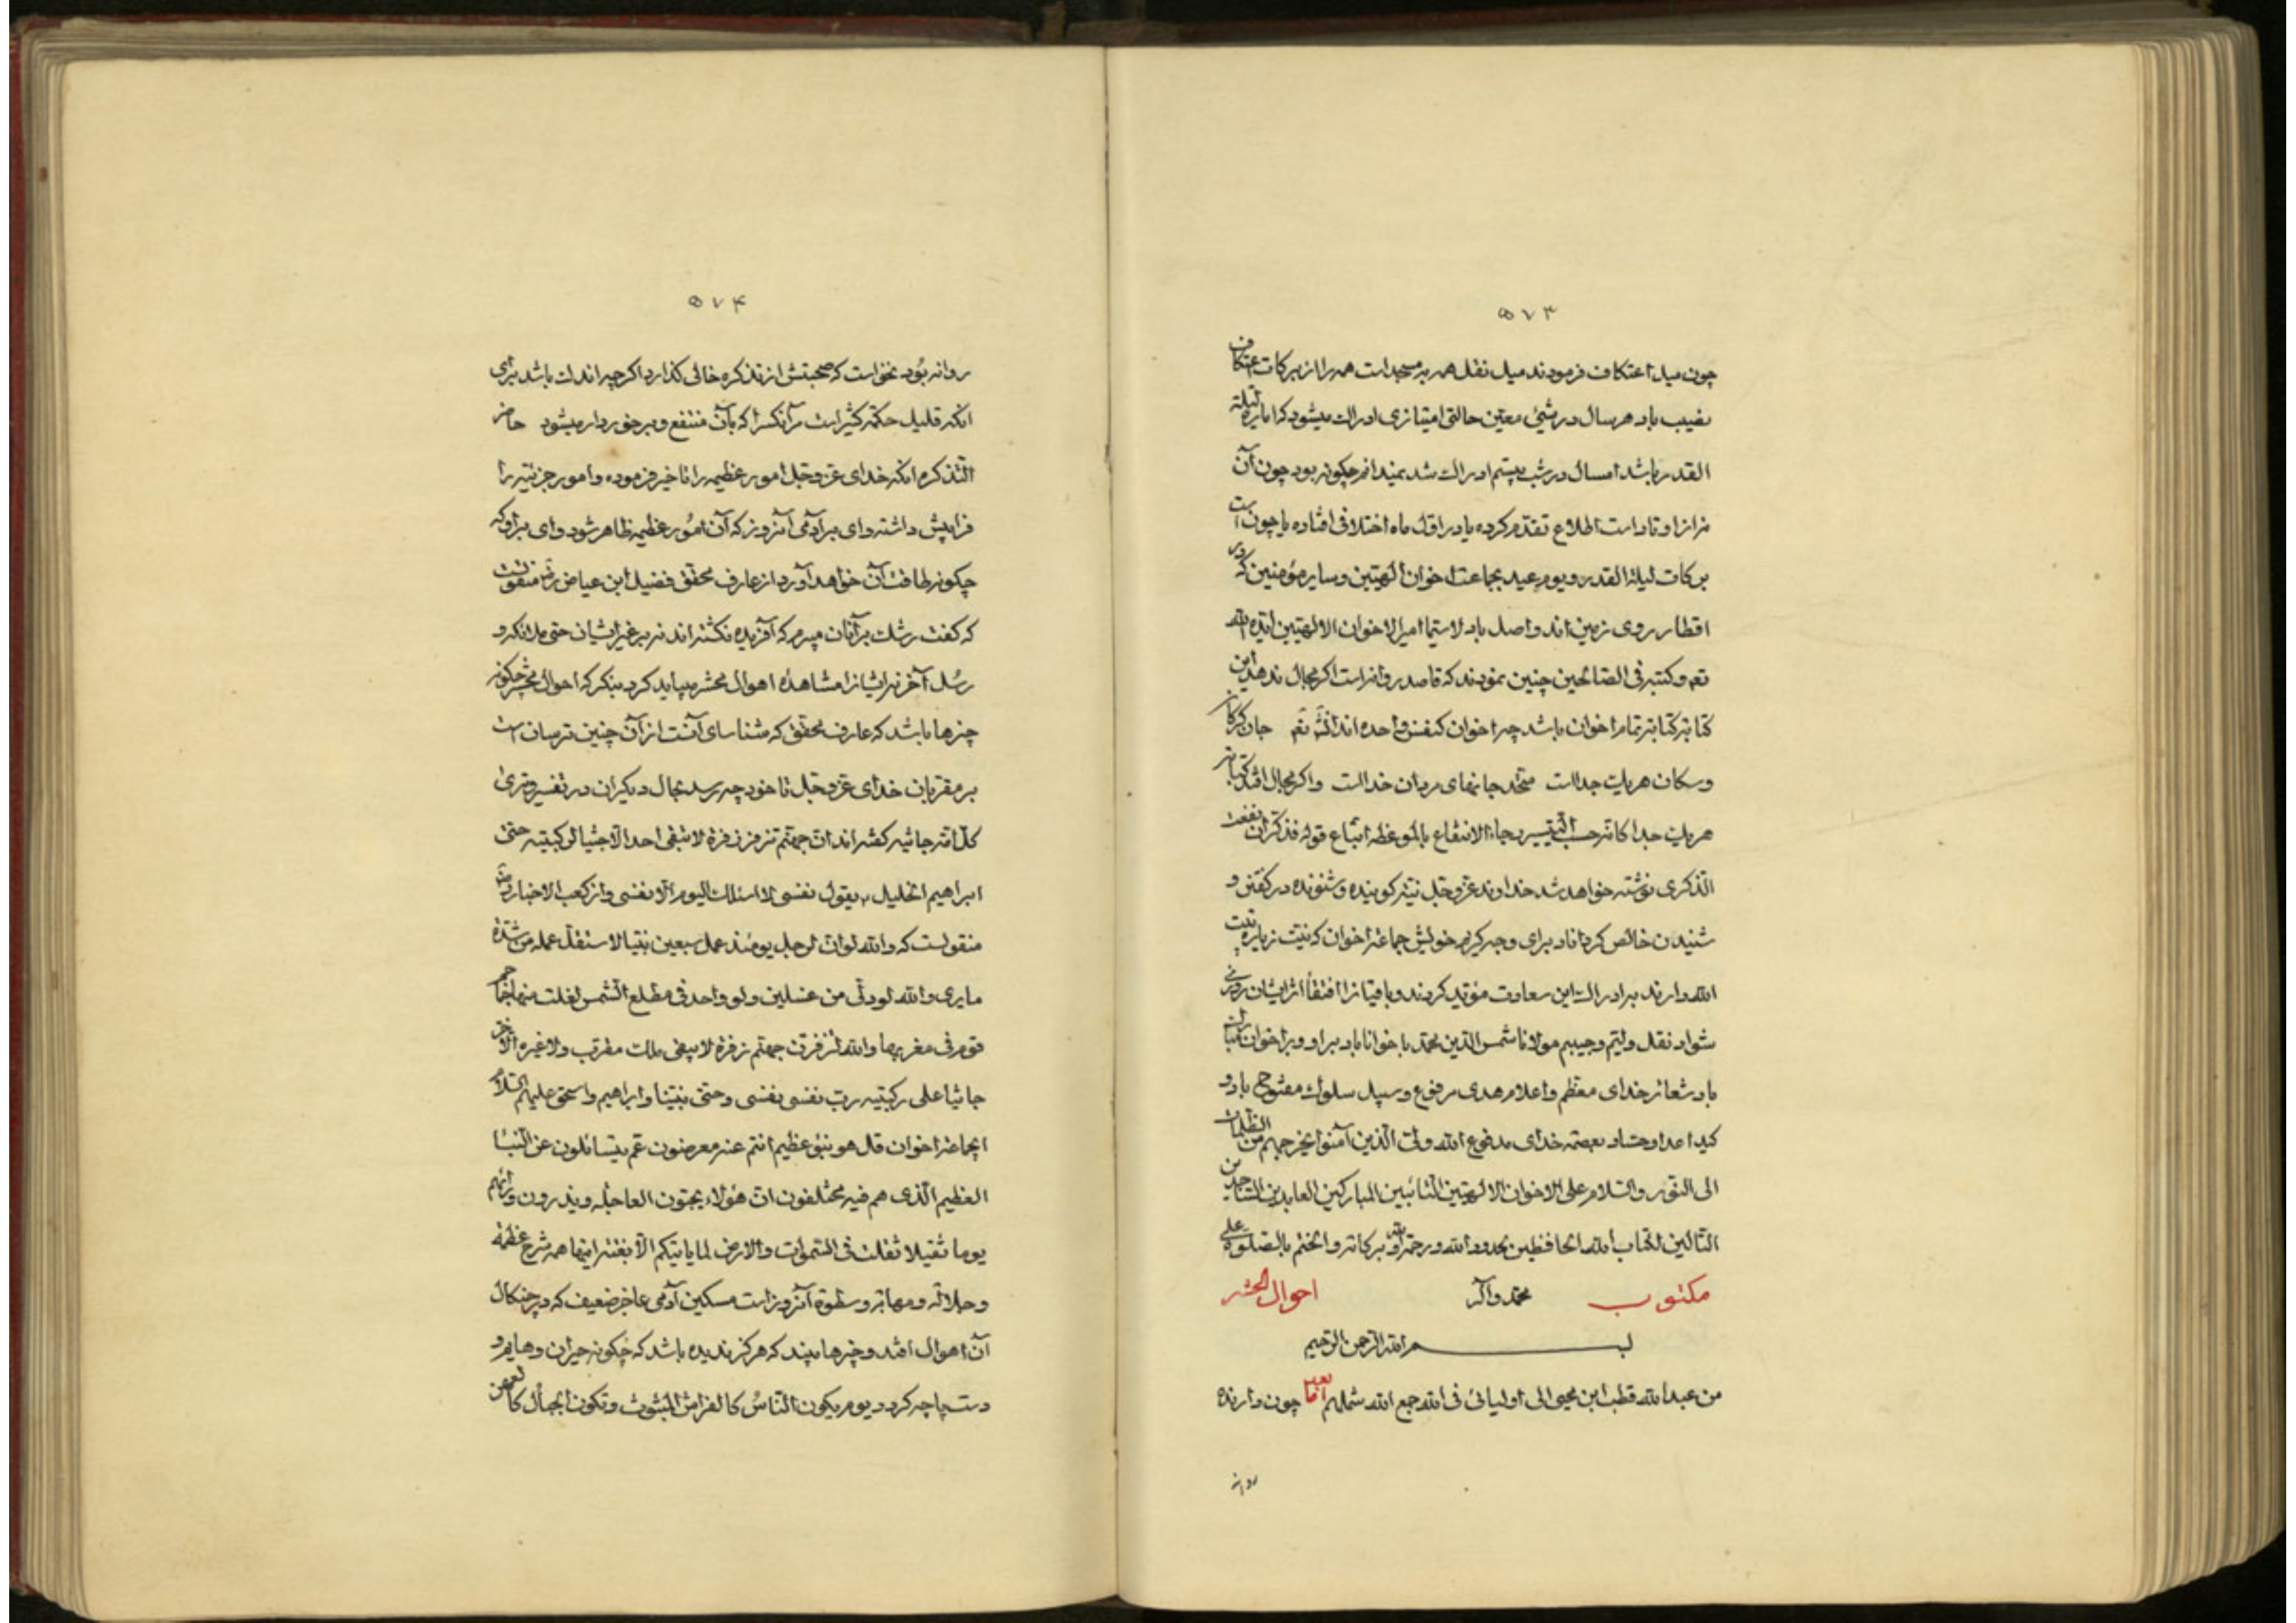 ۵۷۳
چون میل اعتکاف فرمودند میل نقل همه به مسجد است همه را از برکات اعتکاف
نصیب باد هر سال در شبی معین حالتی امتیازی ادراک میشود که اماره لیلة
القدر باشد امسال در شب بیستم ادراک شد نمیدانم چگونه بود چون آن
مرا از اوتاد است اطلاع تقدم کرده یا در اول ماه اختلافی افتاده یا چون است
برکات لیلة القدر و یوم عید بجماعت اخوان الهیین و سایر مؤمنین که در
اقطار روی زمین اند واصل باد لاسیما امیر الاخوان الالهیین ایده الله
تعه و کتبه فی الصالحین چنین نمودند که قاصد روانه است اگر مجال ندهد این
کتابه کتابه تمام اخوان باشد چه اخوان کنفس واحده اند انشآ تعه جان گرگان
و سگان هر یک جداست متحد جانهای مردان خداست و اگر مجال افتد کتابه
هر یک جداگانه حسب التیسیر رجاء الانتفاع بالموعظه اتباع قوله فذکر ان نفعت
الذکری نوشته خواهد شد خداوند عزوجل نیت گوینده و شنونده در گفتن و
شنیدن خالص گرداناد برای وجه کریم خویش جماعت اخوان که نیت زیارت بیت
الله دارند بر ادراک این سعادت مؤید گردند و باقیانرا اقتفا اثر ایشان روزی
شواد نقل ولیم و حبیبم مولانا شمس الدین محمد با خوانا باد بر او و بر اخوان مبارک
باد شعائر خدای معظم و اعلام هدی مرفوع و سبیل سلوک مفتوح باد و
کید اعدا و حساد بعصمة خدای مدفوع الله ولی الذین آمنوا یخرجهم من الظلمات
الی النور و السلام علی الاخوان الالهیین التائبین المبارکین العابدین الساجدین
التالین لکتاب الله الحافظین لحدود الله و رحمة الله و برکاته و الختم بالصلوة علی
مکتوب محمد وآله احوال الحشر
بسم الله الرحمن الرحیم
من عبد الله قطب ابن محیی الی اولیائی فی الله جمع الله شملهم اما بعد چون دارنده
روانه
۵۷۴
روانه بود نخواست که صحبتش از تذکره خالی گذارد اگرچه اندک باشد برای
انکه قلیل حکمة کثیر است مر آنکس را که بآن منتفع و برخوردار میشود حاضر
التذکره انکه خدای عزوجل امور عظیمه را تاخیر فرموده و امور جزئیه را
فرا پیش داشته وای بر آدمی آنروز که آن امور عظیمه ظاهر شود وای بر او که
چگونه طاقت آن خواهد آورد از عارف محقق فضیل ابن عیاض رضه منقولست
که گفت رشک بر آنان میبرم که آفریده نگشته اند نه بر غیر ایشان حتی ملائکه و
رسل آخر نه ایشانرا مشاهدهٔ اهوال محشر میباید کرد بنگر که احوال محشر چگونه
چیزها باشد که عارف محقق که شناسای آنست از آن چنین ترسان است
بر مقربان خدای عزوجل تا خود چه رسد بحال دیگران در تفسیر و تری
کل امة جاثیه گفته اند ان جهنم تزفر زفرة لا تبقی احد الا جثیا لرکبتیه حتی
ابراهیم الخلیل ع یقول نفسی لا اسئلک الیوم الا نفسی و از کعب الاحبار رضه
منقولست که والله لو ان لرجل یومئذ عمل سبعین نبیا لاستقل عمله من شدة
ما یری والله لو دلی من غسلین دلو واحد فی مطلع الشمس لغلت منها جماجم
قوم فی مغربها والله لتزفرن جهنم زفرة لا یبقی ملک مقرب ولا غیره الا خر
جاثیا علی رکبتیه رب نفسی نفسی و حتی نبینا و ابراهیم و اسحق علیهم السلام
ایجماعت اخوان قل هو نبؤ عظیم انتم عنه معرضون عم یتسائلون عن النبا
العظیم الذی هم فیه مختلفون ان هؤلاء یحبون العاجله و یذرون وراءهم
یوما ثقیلا ثقلت فی السموات والارض لا یاتیکم الا بغتة اینها همه شرح عظمة
و جلالة و مهابة و سطوة آنروز است مسکین آدمی عاجز ضعیف که در چنگال
آن اهوال افتد و چیزها بیند که هرگز ندیده باشد که چگونه حیران و هایم و
دست پاچه گردد یوم یکون الناس کالفراش المبثوث و تکون الجبال کالعهن